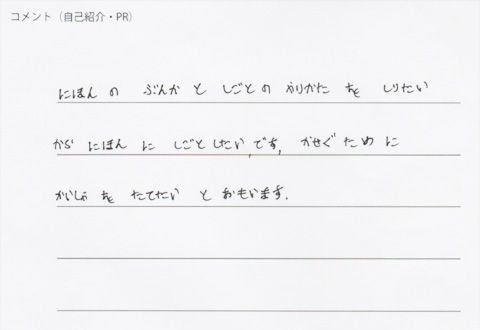 コメント（自己紹介・PR）
にほん の ぶんか と しごとの かりかた を しりたい
から にほん に しごと したい,です, かせぐ ために
かいしゃ を たてたい と おもいます.